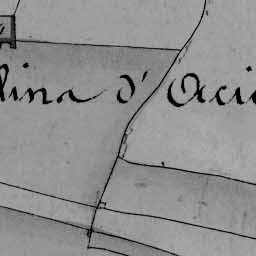 lina d' Acie